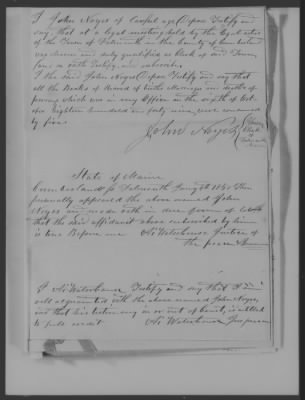 I John Noyes of lawful age Depose Testify and
say, that at a legal meeting held by the legal voters
of the Town of Falmouth in the County of Cumberland
was chosen and duly qualified as Clerk of said Town,
on oath Testify, and subscribe
I the said John Noyes Depose Testify and say that
all the Books of Record of births Marriages and deaths of
persons which was in my Office in the month of
eighteen hundred and forty nine were consumed
by fire.
John Noyes
Town
Clerk
of
Falmouth
State of Maine
Cumberland ss Falmouth 1851 Then
personally appeared the above named John
Noyes and made oath in due form of Law
that the above affidavit above subscribed by him
is true Before me Waterhouse Justice of
The peace
I Waterhouse Testify and say that I am
well acquainted with the above named John Noyes,
and that his testimony in or out of Court, is entitled
to full credit Waterhouse Jus peace